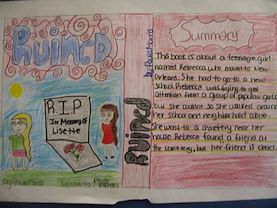 Ruined
R.I.P
In Memory Of
Lisette
by: Paula
Illustrated
Ruined
by: Paula
Summary
This book is about a teenage girl
named Rebecca who moved to New
Orleans. She had to go to a new
School. Rebecca was trying to get
attention from a group of popular girls
but she couldn't so she walked around
her school and neighborhood alone.
She went to a cemetery near her
house. Rebecca found a friend at
the cemetery, but her friend is dead.